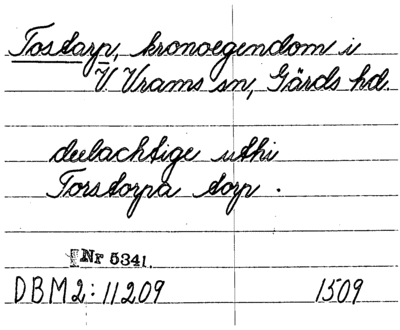 Tostarp, kronoegendom i
V. Vrams sn, Gärds hd.
deelachtige uthi
Torstorpa torp.
Nr 5341.
DBM2:11209 1509